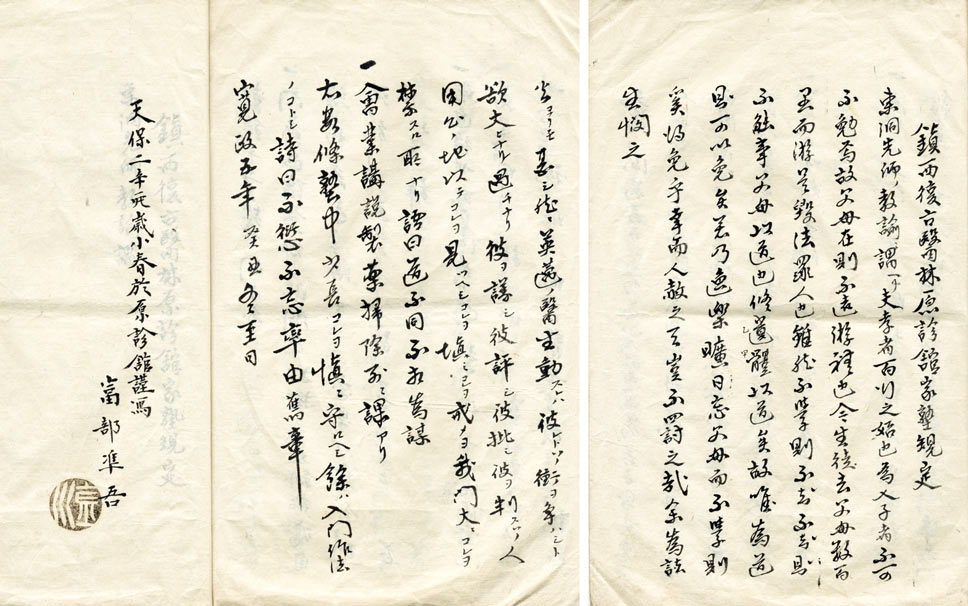 鎮西復古醫林原診舘家塾規定
東洞先師ノ教諭ニ謂ヘリ夫孝者百行之始也為人子者不可
不勉焉故父母在則不遠游禮也今生徒去父母数百
里而游是毀法罪人也雖然不学則不知不知則
不能事父母以道也修遺體以道矣故唯為道
則可以免矣若乃逸樂曠日忘父母而不学則
奚得免乎幸而人赦之天豈不罰討之哉余為諸
生憫之
甚シ然 英邁ノ醫生動スレハ彼ト 衒ヲ争ハント
欲ス大ヒナル過チナリ彼ヲ謗シ彼ヲ評シ彼ヲ批シ彼ヲ判スルハ人
地 以テコレヲ見ツヘシコレヲ慎ミ 戒メヨ我門大ニコレヲ
禁スル所ナリ語曰道不同不相為謀
一會業講説製薬掃除別ニ課アリ
右数條塾中少長コレヲ慎ミ守ルヘシ餘ハ入門作法
ノコトシ詩曰不愆不忘率由舊章
寛政五年癸丑冬至日
天保二辛卯歳小春於原診舘謹寫
富部準吾